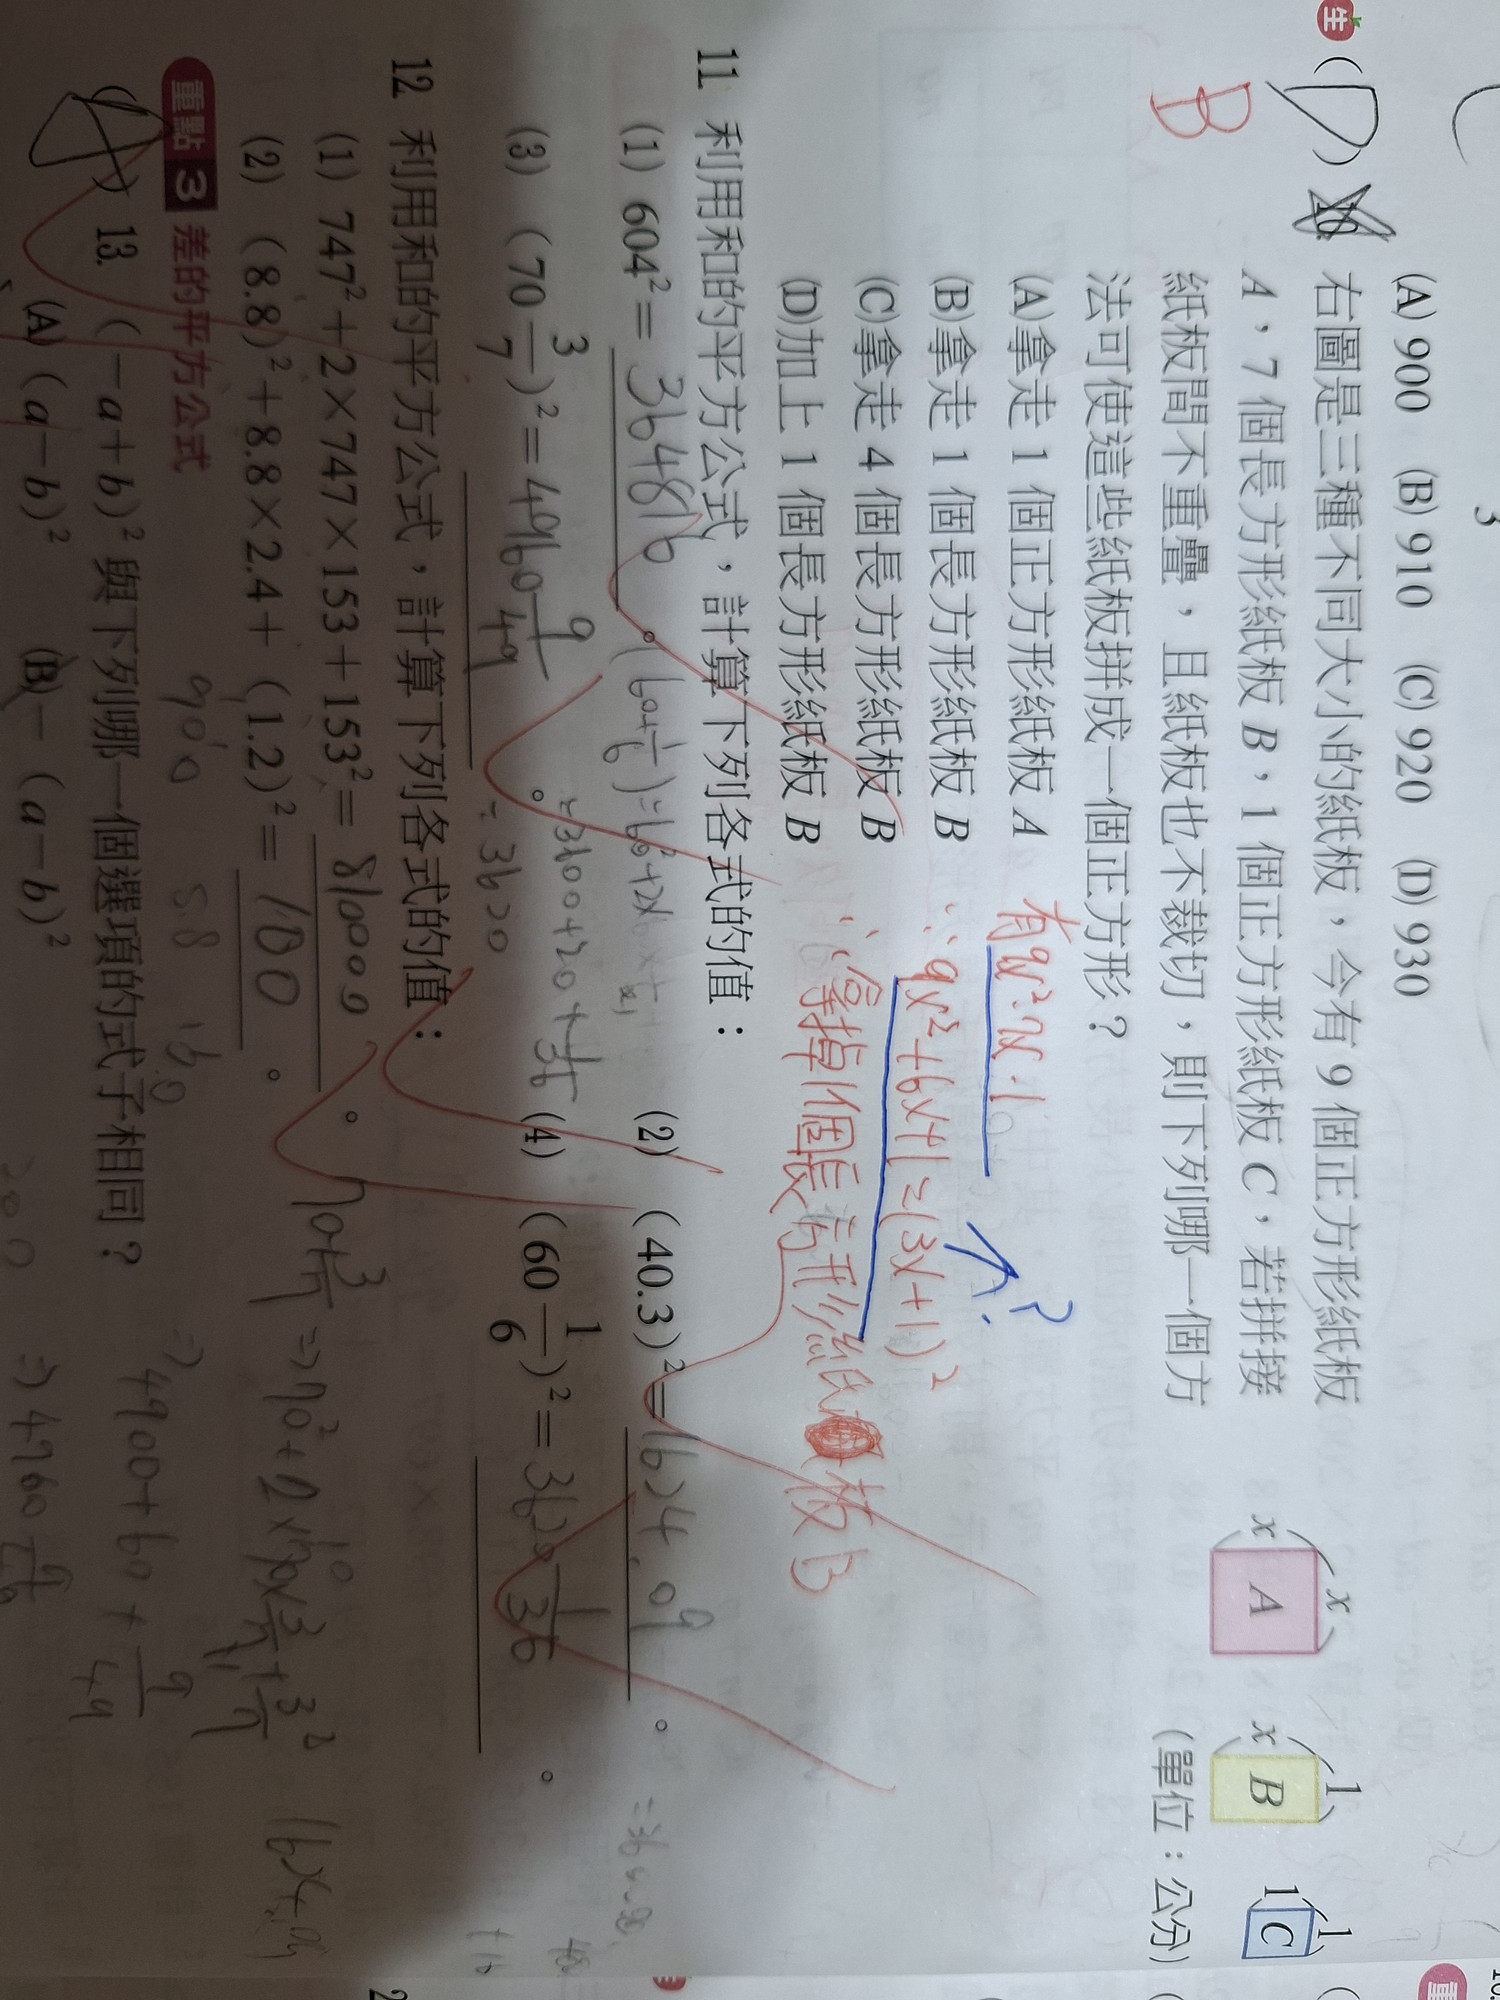 3
(A) 900 (B) 910 (C) 920 (D) 930
生 ( D ) 10. 右圖是三種不同大小的紙板,今有 9 個正方形紙板
B
A,7 個長方形紙板 B,1 個正方形紙板 C,若拼接
紙板間不重疊,且紙板也不裁切,則下列哪一個方
法可使這些紙板拼成一個正方形?
x x A
x 1 B
1 1 C
(單位:公分)
(A)拿走 1 個正方形紙板 A
(B)拿走 1 個長方形紙板 B
(C)拿走 4 個長方形紙板 B
(D)加上 1 個長方形紙板 B
有9x²、7x、1
?
∵9x²+6x+1=(3x+1)²
∴拿掉1個長方形紙板B
11 利用和的平方公式,計算下列各式的值:
(1) 604²= 364816 。
(2) (40.3)²= 1624.09 。
(3) (70 3/7)²= 4960 9/49 。
(4) (60 1/6)²= 3620 1/36 。
=3600+20+1/36
=3620
12 利用和的平方公式,計算下列各式的值:
(1) 747²+2×747×153+153²= 810000 。
(2) (8.8)²+8.8×2.4+(1.2)²= 100 。
70+3/7 => 70²+2×70×3/7+3/7²
=> 4900+60+9/49
=> 4960 9/49
重點 3 差的平方公式
( A ) 13. (-a+b)² 與下列哪一個選項的式子相同?
(A) (a-b)² (B) -(a-b)²
900
8.8